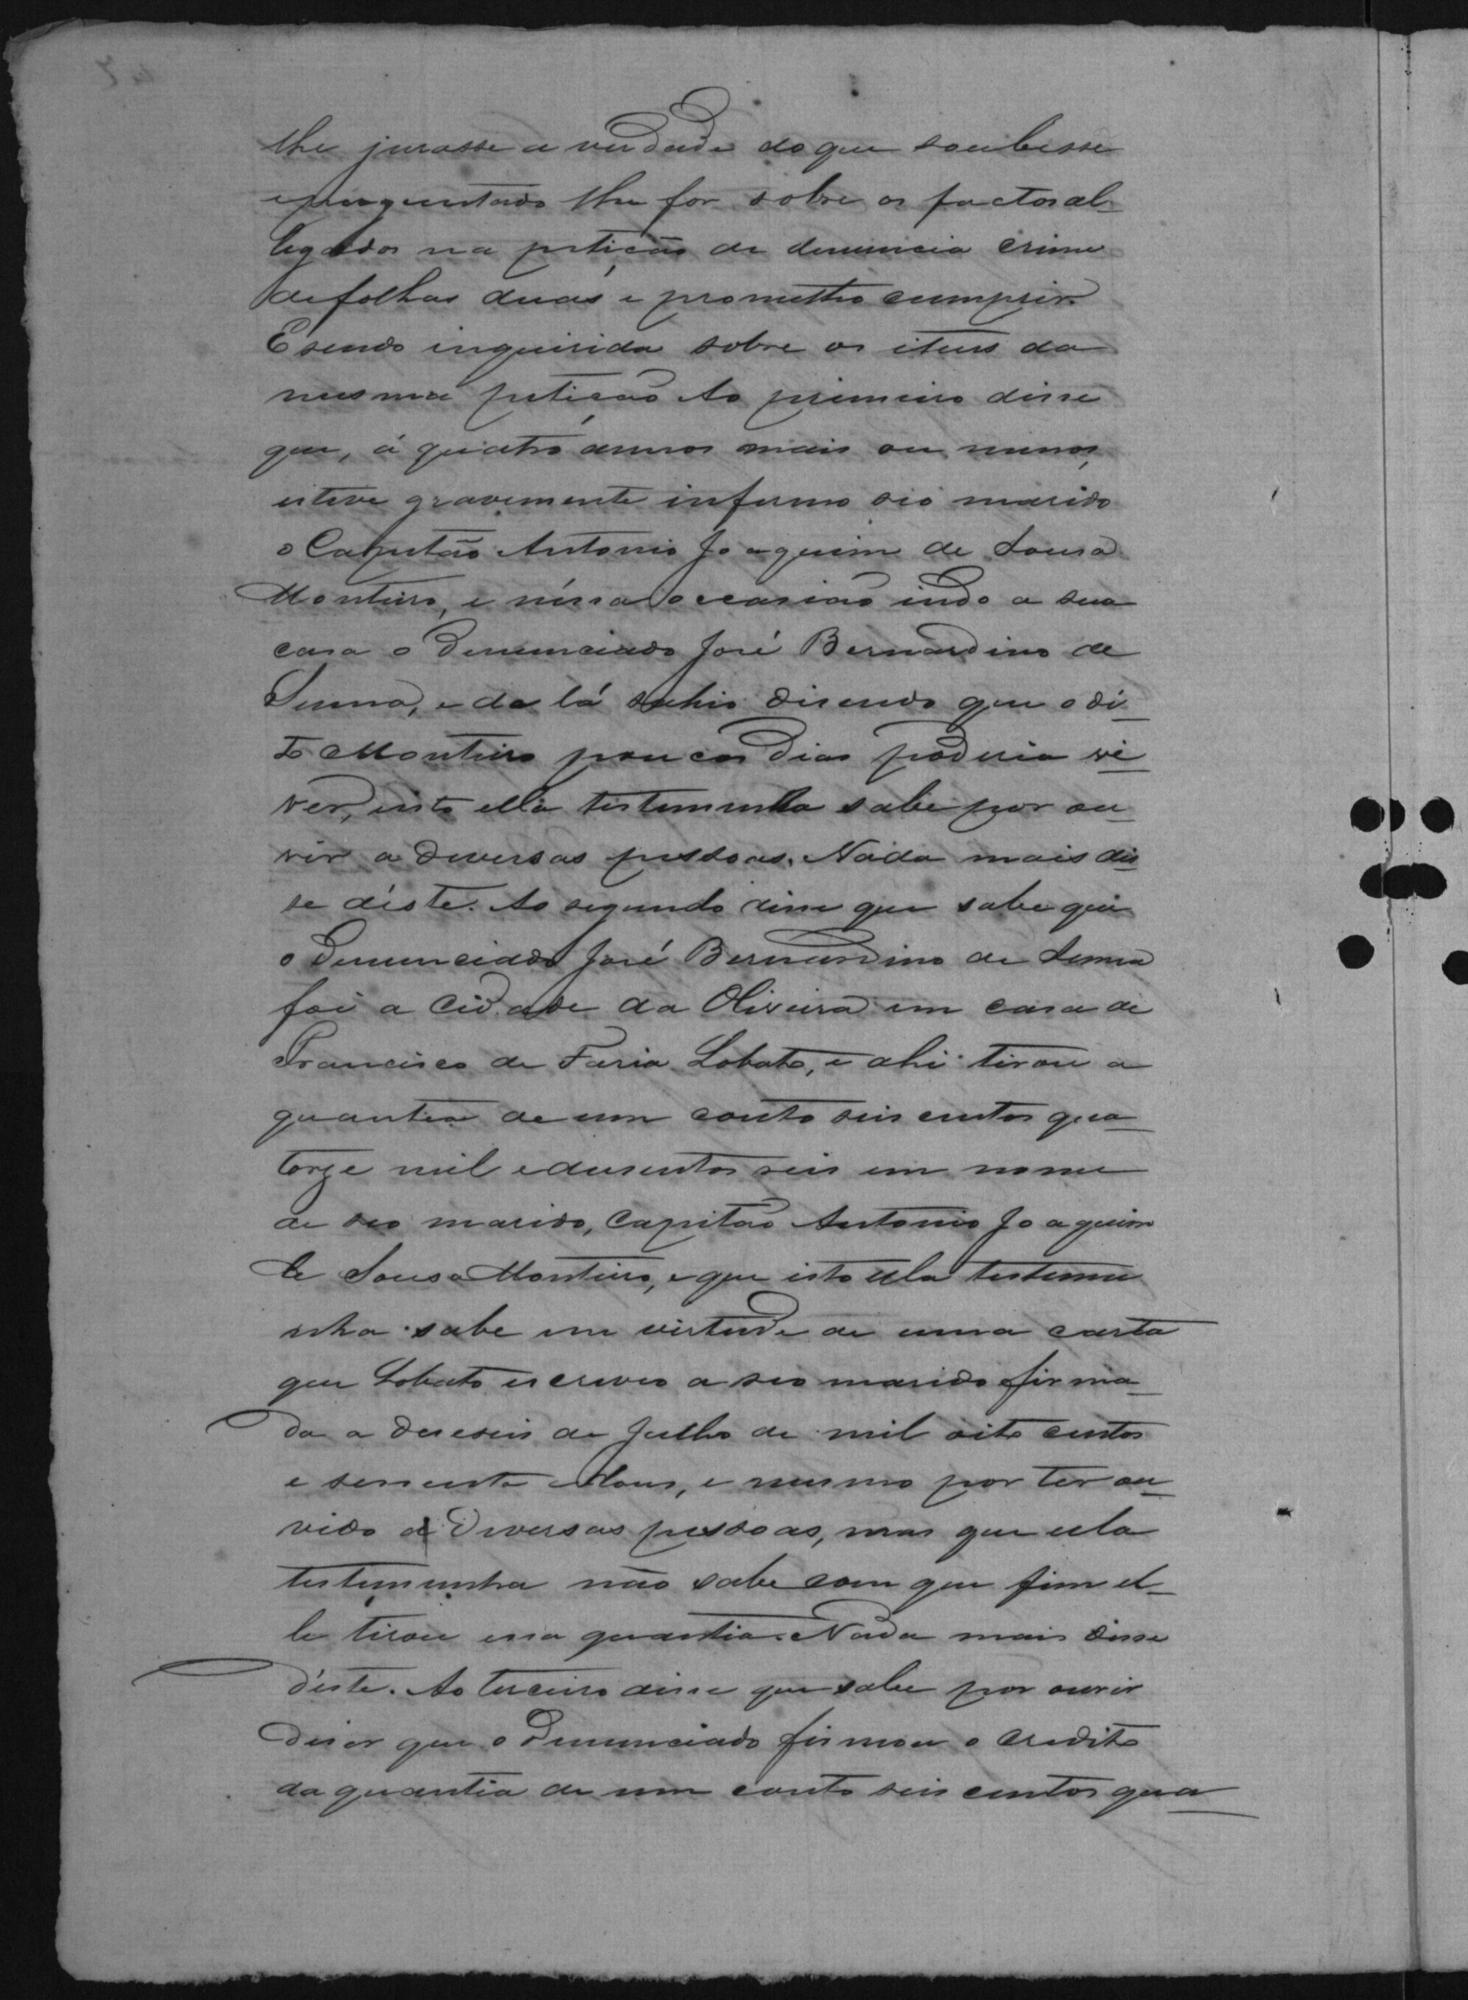 lhe jurasse a verdade do que soubesse
e perguntado lhe for sobre os factos al-
legados na petição de denuncia crime
de folhas duas e prometteo cumprir.
E sendo inquirida sobre os itens da
mesma petição Ao primeiro disse
que, á quatro annos mais ou menos,
esteve gravemente infermo seo marido
o Capitão Antonio Joaquim de Sousa
Monteiro, e néssa occasião indo a sua
casa o Denunciado José Bernardino de
Senna, e de lá sahio disendo que o di-
to Monteiro poucos dias poderia vi-
ver, isto ella testemunha sabe por ou-
vir a diversas pessoas. Nada mais dis-
se déste. Ao segundo disse que sabe que
o Denunciado José Bernardino de Senna
foi a Cidade da Oliveira em casa de
Francisco de Faria Lobato, e ahi tirou a
quantia de um conto seis centos qua-
torze mil e dusentos reis em nome
de seo marido, Capitão Antonio Joaquim
de Sousa Monteiro, e que isto ella testemu
nha sabe em virtude de uma carta
que Lobato escreveo a seo marido firma-
da a deseseis de Julho de mil oito centos
e sessenta e dous, e mesmo por ter ou-
vido a diversas pessoas, mas que ella
testemunha não sabe com que fim el-
le tirou essa quantia. Nada mais disse
déste. Ao terceiro disse que sabe por ouvir
diser que o Denunciado firmou o credito
da quantia de um conto seis centos qua-